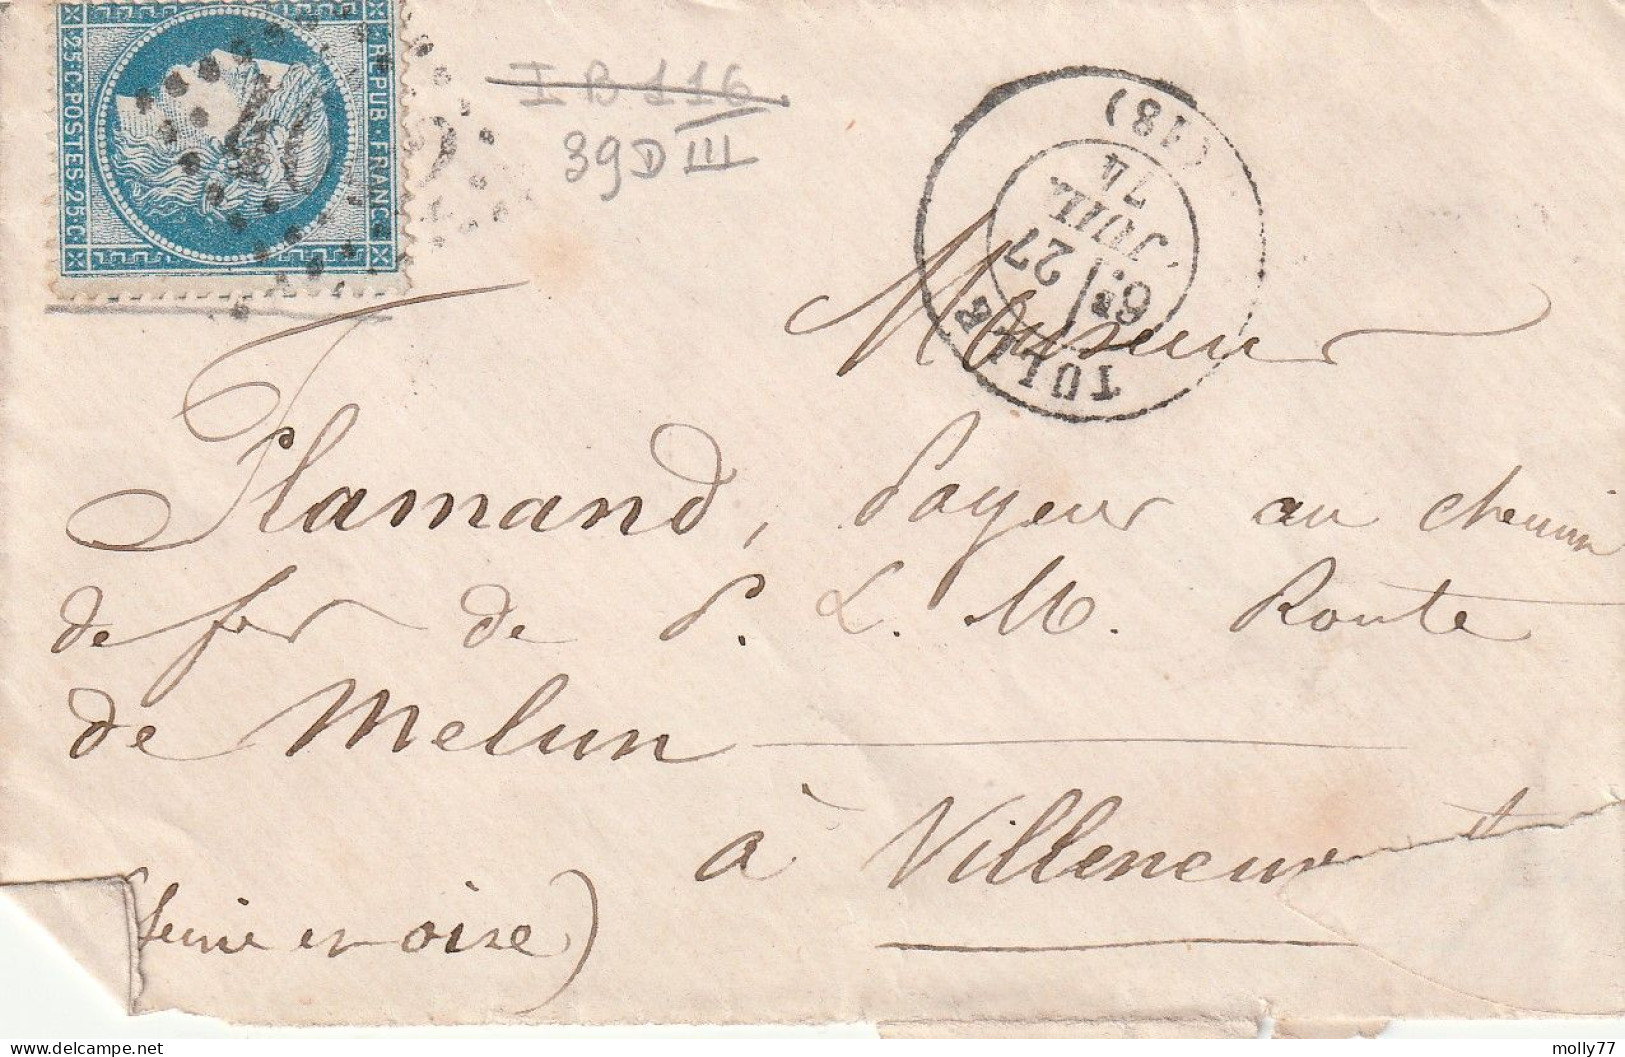 25·C·POSTES·25·C·
·REPUB·FRANC·
I B 116
39D III
(18)
TULLE
6E
27
JUIL.
74
Monsieur
Flamand, Payeur au chemin
de fer de P. L. M. Route
de Melun
à Villeneuve St
(Seine et oise)
delcampe.net
molly77